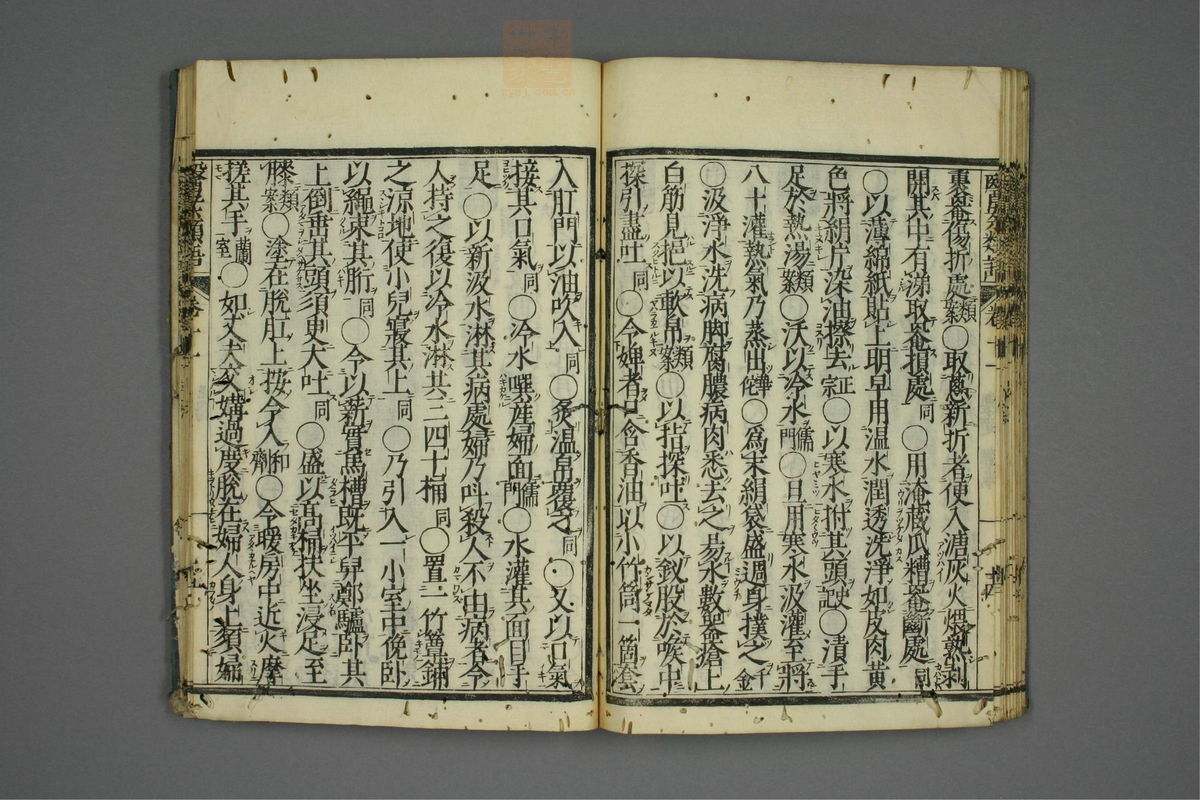 裹罨傷折處類案〇取葱新折者便入溏灰火煨熟剥
開其中有涕取罨損處同〇用淹藏瓜糟罨斷處同
〇以薄綿紙貼上明早用温水潤透洗淨如皮肉黄
色將絹片深油擦去正宗〇以寒水拊其頭史記〇漬手
足於熱湯類案〇沃以冷水儒門〇旦用寒水汲灌至將
八十灌熱氣乃蒸出華佗〇爲末絹袋盛週身撲之千金
〇汲淨水洗病脚腐膿病肉悉去之易水數器搶上
白筋見挹以軟帛類案〇以桔探吐〇以釵股於喉中
探引盡吐同〇令婢者口含香油以小竹筒一箇套
入肛門以油吹入同〇炙温帛覆之同〇又以口氣
接其口氣同〇冷水噀産婦面儒門〇水灌其面目手
足〇以新汲水淋其病處婦乃叫殺人不由病者令
人持之復以冷水淋其三四十桶同〇置一竹簟鋪
之涼地使小兒寢其上同〇乃引入一小室中俛卧
以繩束其胻同〇令以薪實馬槽既平舁鄭驢卧其
上倒垂其頭須臾大吐同〇盛以高桶扶坐浸足至
膝類案〇塗在脱肛上按令入和劑〇令暖房中近火摩
搓其手蘭室〇如又去父媾過度脱在婦人身上須婦